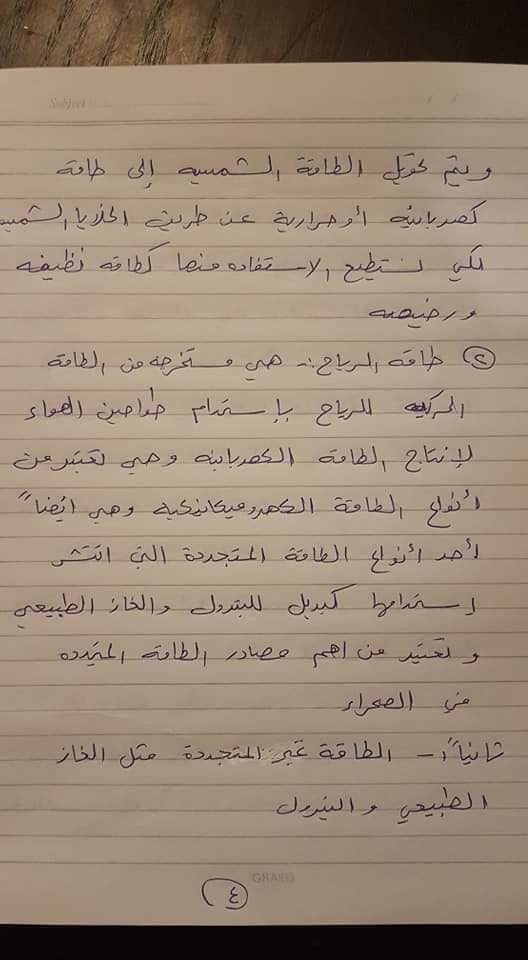 Subject
ويتم تحويل الطاقة الشمسيه إلى طاقه
كهربائيه أو حرارية عن طريق الخلايا الشمسيه
لكي نستطيع الاستفاده منها كطاقه نظيفه
ورخيصه
٢ طاقه الرياح :- هي مستخرجه من الطاقة
الحركيه للرياح بإستخدام طواحين الهواء
لإنتاج الطاقة الكهربائيه وهي تعتبر من
أنواع الطاقة الكهروميكانيكيه وهي ايضاً
أحد أنواع الطاقة المتجددة التي انتشر
إستخدامها كبديل للبترول والغاز الطبيعي
وتعتبر من اهم مصادر الطاقه المتجدده
في الصحراء
ثانياً :- الطاقة غير المتجددة مثل الغاز
الطبيعي والبترول
٤